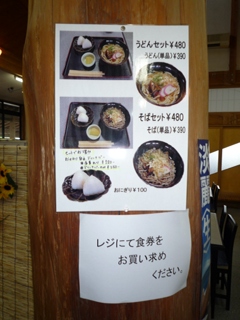 うどんセット¥480
うどん(単品)¥390
そばセット¥480
そば(単品)¥390
おにぎり¥100
レジにて食券を
お買い求め
ください。